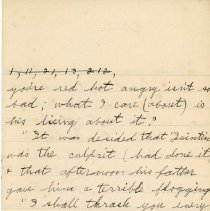 1, 11, 21, 13, 212,
you're red hot angry isn't so
bad; what I care (about) is
his lieing about it?
"It was decided that Quintin
was the culprit (had done it
& that afternoon his father
gave him a terrible flogging
"I shall thrash you every